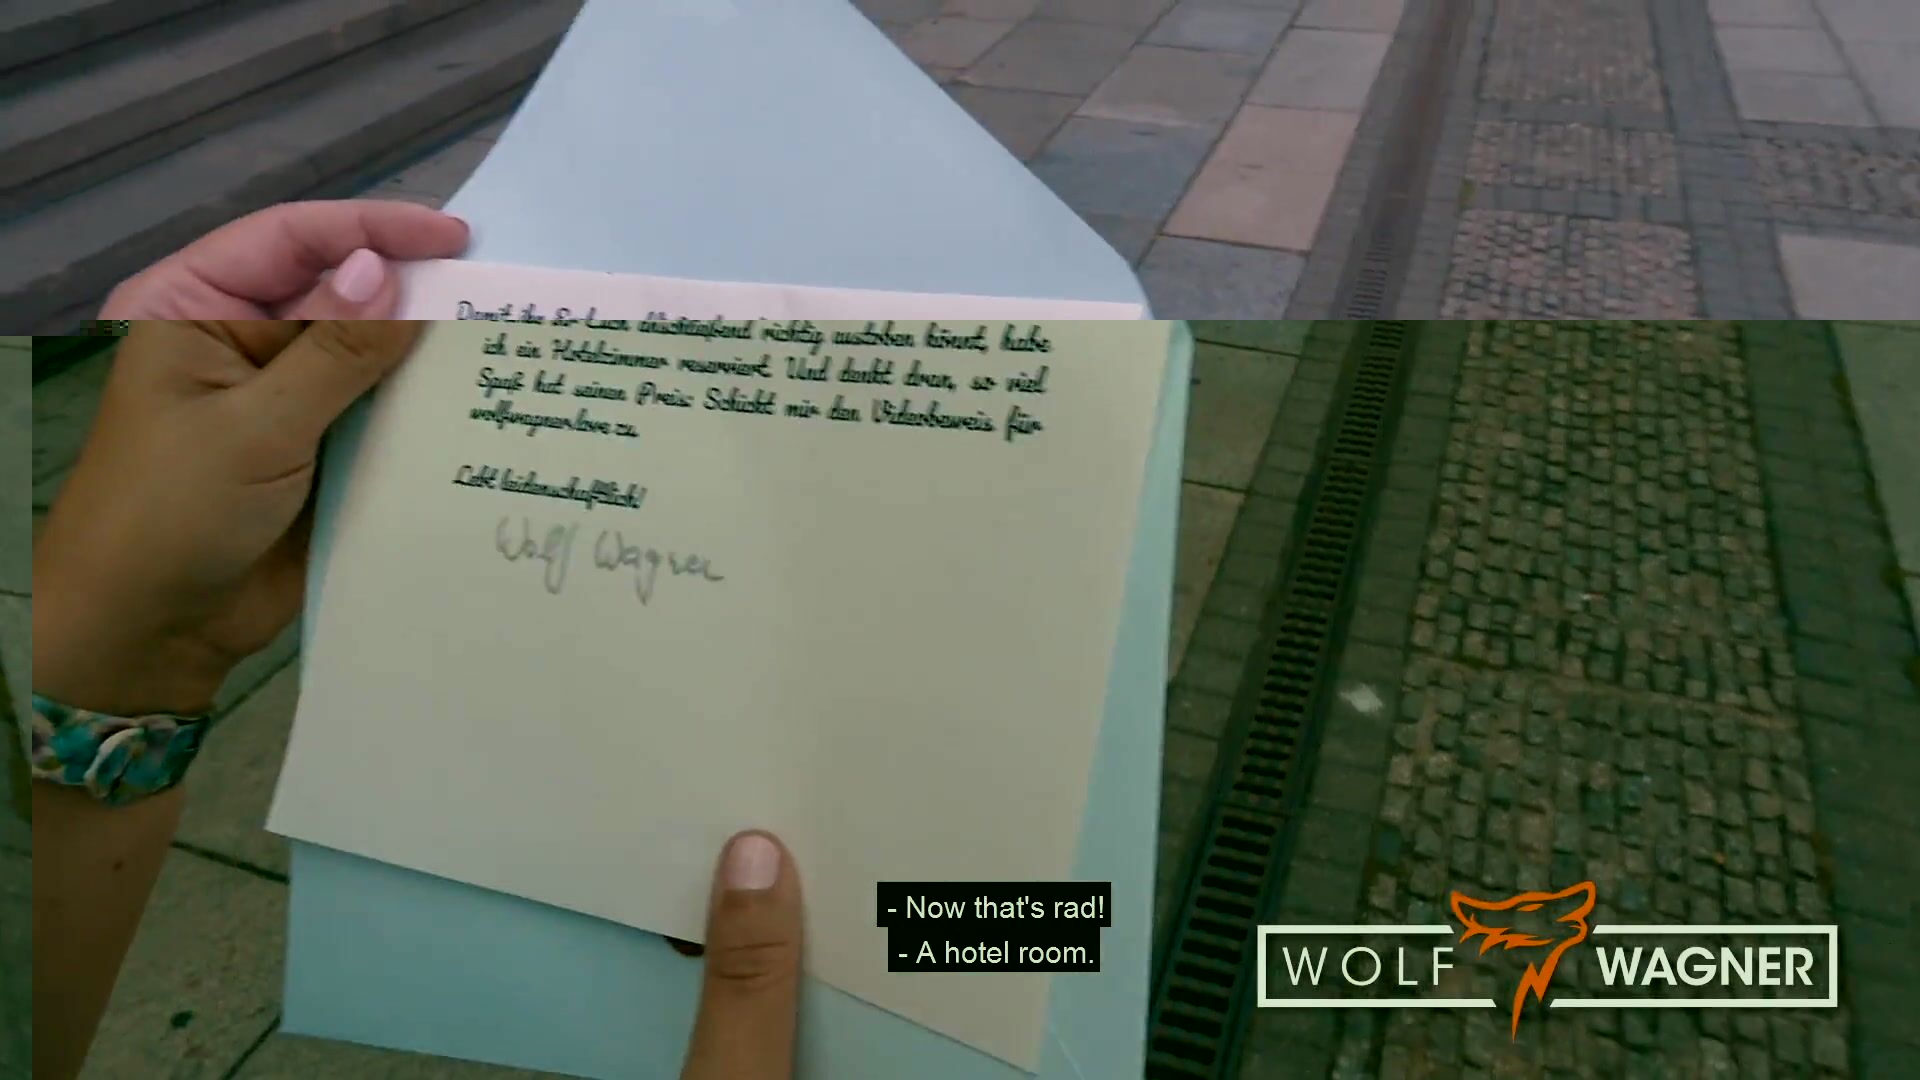 Damit ihr Euch anschließend richtig austoben könnt, habe
ich ein Hotelzimmer reserviert. Und denkt dran, so viel
Spaß hat seinen Preis: Schickt mir den Videobeweis für
wolfwagner.love zu.
Lebt leidenschaftlich!
Wolf Wagner
- Now that's rad!
- A hotel room.
WOLF WAGNER